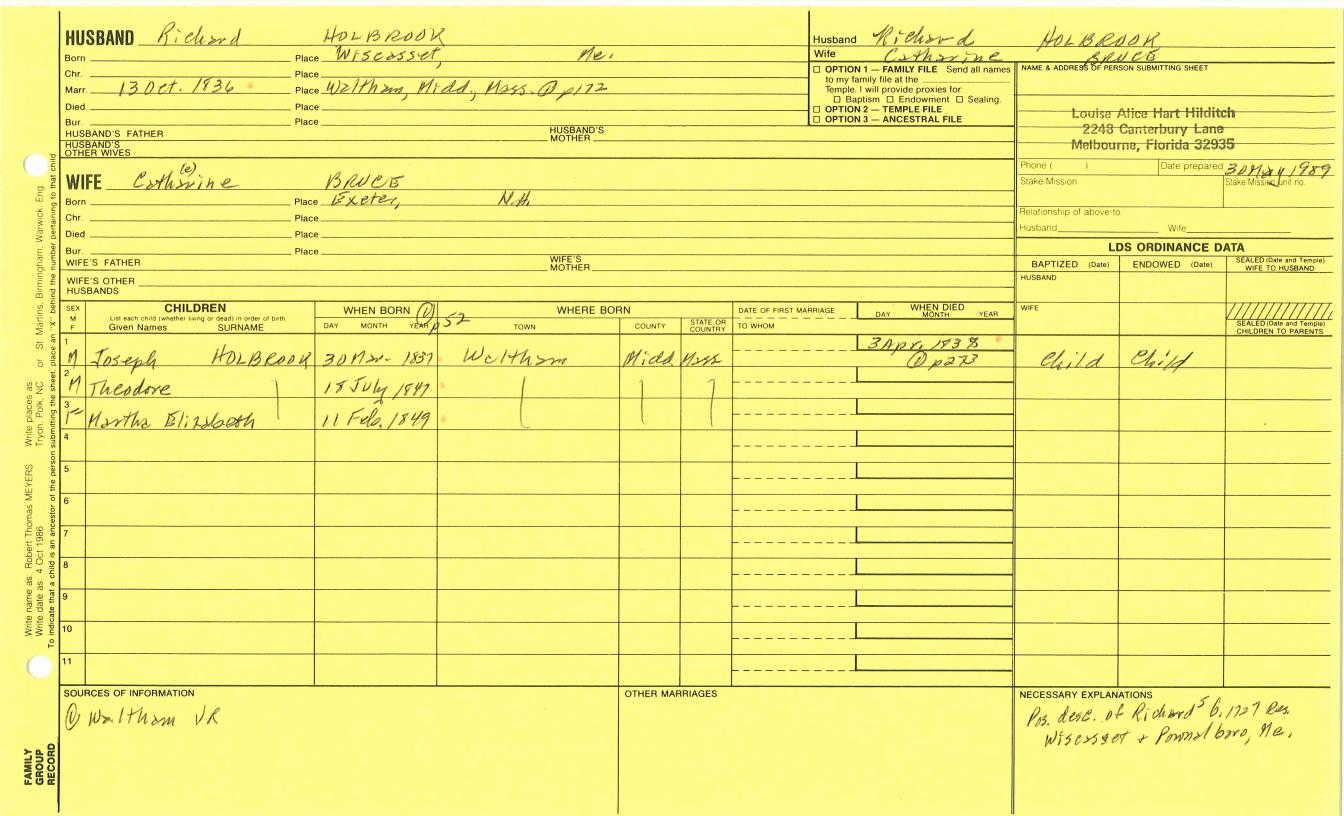 HUSBAND Richard HOLBROOK
Born Place Wiscasset, Me.
Chr. Place
Marr. 13 Oct. 1836 Place Waltham, Midd., Mass. ① p172
Died Place
Bur. Place
HUSBAND'S FATHER HUSBAND'S MOTHER
HUSBAND'S OTHER WIVES
Husband Richard HOLBROOK
Wife Catharine BRUCE
☐ OPTION 1 — FAMILY FILE Send all names
to my family file at the
Temple. I will provide proxies for:
☐ Baptism ☐ Endowment ☐ Sealing.
☐ OPTION 2 — TEMPLE FILE
☐ OPTION 3 — ANCESTRAL FILE
NAME & ADDRESS OF PERSON SUBMITTING SHEET
Louise Alice Hart Hilditch
2248 Canterbury Lane
Melbourne, Florida 32935
Phone ( ) Date prepared 30 May 1989
Stake-Mission Stake-Mission unit no.
Relationship of above to:
Husband Wife
(e)
WIFE Catharine BRUCE
Born Place Exeter, N.H.
Chr. Place
Died Place
Bur. Place
WIFE'S FATHER WIFE'S MOTHER
WIFE'S OTHER HUSBANDS
LDS ORDINANCE DATA
BAPTIZED (Date) ENDOWED (Date) SEALED (Date and Temple) WIFE TO HUSBAND
HUSBAND
WIFE
SEALED (Date and Temple) CHILDREN TO PARENTS
SEX M F
CHILDREN
List each child (whether living or dead) in order of birth
Given Names SURNAME
WHEN BORN ① p52
DAY MONTH YEAR
WHERE BORN
TOWN COUNTY STATE OR COUNTRY
DATE OF FIRST MARRIAGE
TO WHOM
WHEN DIED
DAY MONTH YEAR
1 M Joseph HOLBROOK 30 Mar. 1837 Waltham Midd Mass 3 Apr. 1838 ① p273 Child Child
2 M Theodore 18 July 1847
3 F Martha Elizabeth 11 Feb. 1849
4
5
6
7
8
9
10
11
SOURCES OF INFORMATION
① Waltham VR
OTHER MARRIAGES
NECESSARY EXPLANATIONS
Pos. desc. of Richard⁵ b. 1727 Res.
Wiscasset + Pownalboro, Me.
Write name as: Robert Thomas MEYERS Write places as: Tryon, Polk, NC or St. Martins, Birmingham, Warwick, Eng.
Write date as: 4 Oct 1986
To indicate that a child is an ancestor of the person submitting the sheet, place an "X" behind the number pertaining to that child
FAMILY
GROUP
RECORD